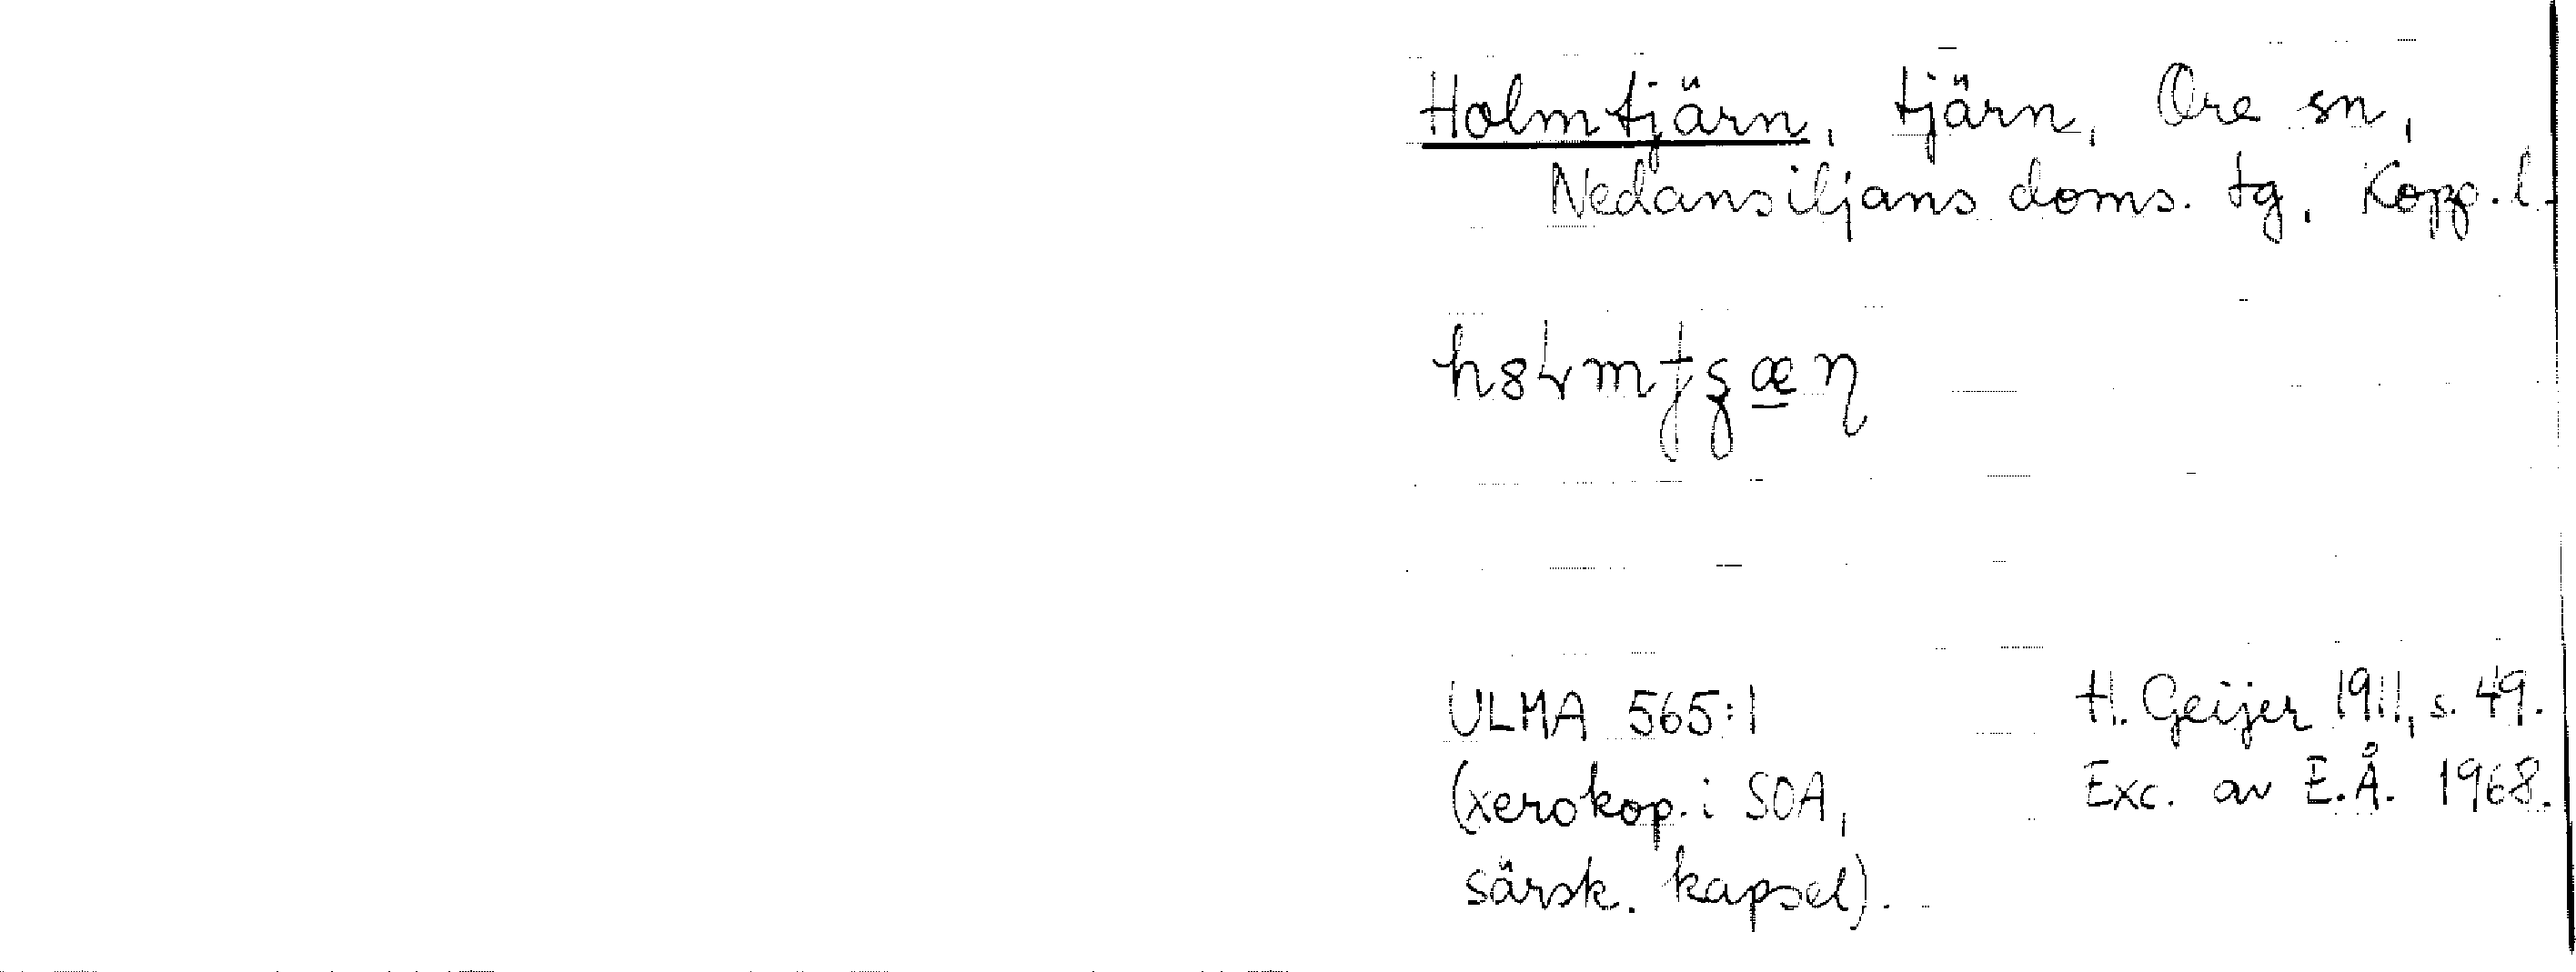 Holmtjärn, tjärn, Ore sn,
Nedansiljans doms. tg, Kopp. l.
ULMA 565:1 H. Geijer 1911, s. 49.
(xerokop. i SOA, Exc. av E.Å. 1968.
särsk. kapsel).